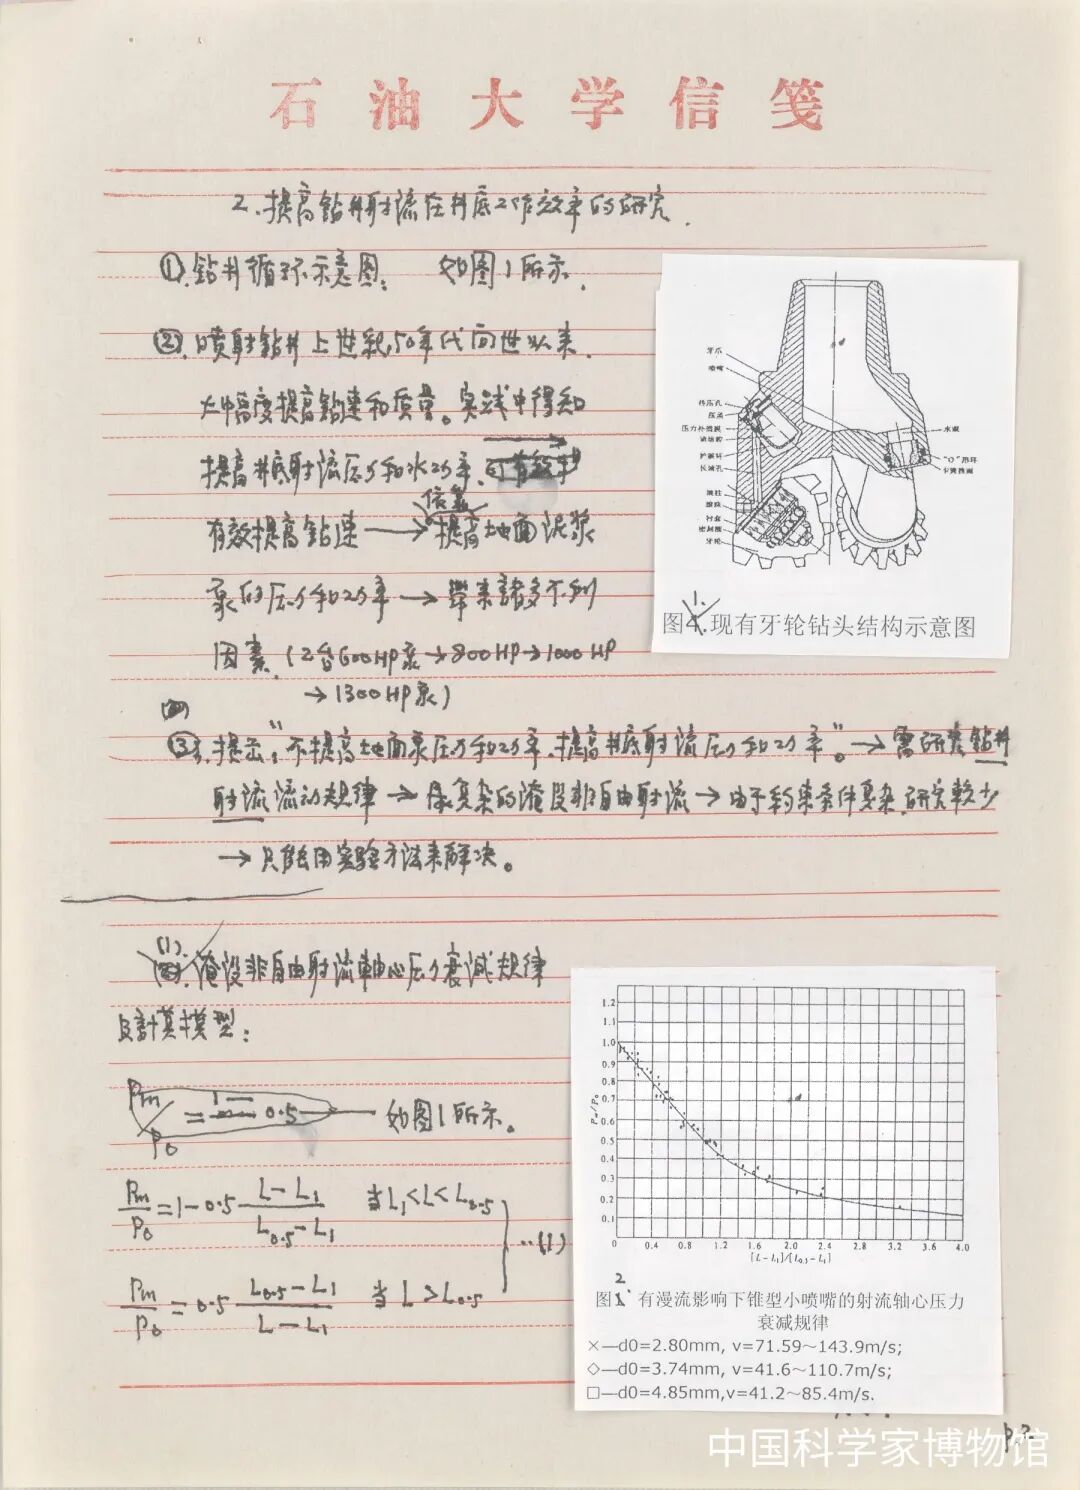 石油大学信笺
2.提高钻井射流在井底工作效率的研究.
①.钻井循环示意图: 如图1所示.
②.喷射钻井上世紀50年代问世以来.
大幅度提高钻速和质量。实践中得知
提高井底射流压力和水功率,
有效提高钻速→提高地面泥浆
泵的压力和功率→帶来諸多不利
因素.(2台600HP泵→800HP→1000HP
→1300HP泵)
③.提出:"不提高地面泵压力和功率.提高井底射流压力和功率"。→需研究钻井
射流流动规律→属复杂的淹没非自由射流→由于约束条件复杂.研究較少
→只能用实验方法来解决。
牙爪
喷嘴
传压孔
压盖
压力补偿膜
储油腔
护膜杯
长油孔
滚柱
滚珠
衬套
密封圈
牙轮
水眼
"O"形环
卡簧挡圈
图1.现有牙轮钻头结构示意图
(1).淹没非自由射流軸心压力衰减规律
及計算模型:
Pm/P0 = 1-0.5 如图1所示。
Pm/P0 = 1-0.5 (L-L1)/(L0.5-L1) 当L1<L<L0.5
··(1)
Pm/P0 = 0.5 (L0.5-L1)/(L-L1) 当L>L0.5
1.2
1.1
1.0
0.9
0.8
0.7
0.6
0.5
0.4
0.3
0.2
0.1
Pm/P0
0 0.4 0.8 1.2 1.6 2.0 2.4 2.8 3.2 3.6 4.0
[L-L1]/[L0.5-L1]
图2. 有漫流影响下锥型小喷嘴的射流轴心压力
衰减规律
×—d0=2.80mm, v=71.59～143.9m/s;
◇—d0=3.74mm, v=41.6～110.7m/s;
□—d0=4.85mm,v=41.2～85.4m/s.
中国科学家博物馆